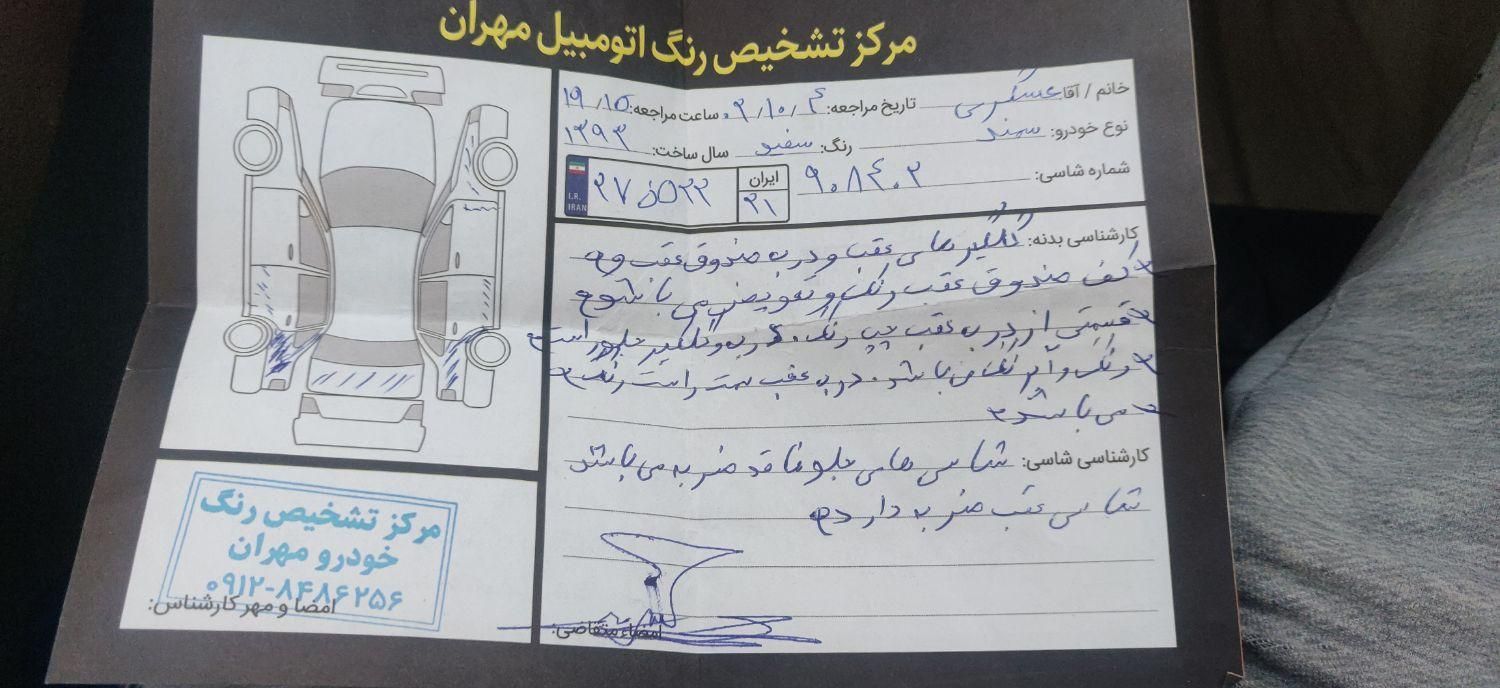 مرکز تشخیص رنگ اتومبیل مهران
خانم / آقا: عسگری تاریخ مراجعه: ۰۲/۱۰/۴ ساعت مراجعه: ۱۹/۱۵
نوع خودرو: سمند رنگ: سفید سال ساخت: ۱۳۹۳
شماره شاسی: ۹۰۸۴۰۲
ایران
۲۱
I.R.
IRAN
کارشناسی بدنه: گلگیر های عقب و درب صندوق عقب و
کف صندوق عقب رنگ و تعویض می باشد
قسمتی از درب عقب چپ رنگ. درب و گلگیر جلو راست
رنگ می باشد. درب عقب سمت راست رنگ
می باشد
کارشناسی شاسی: شاسی های جلو فاقد ضربه می باشد
شاسی عقب ضربه دارد
مرکز تشخیص رنگ
خودرو مهران
۰۹۱۲-۸۴۸۶۲۵۶
امضا و مهر کارشناس:
امضاء متقاضی: